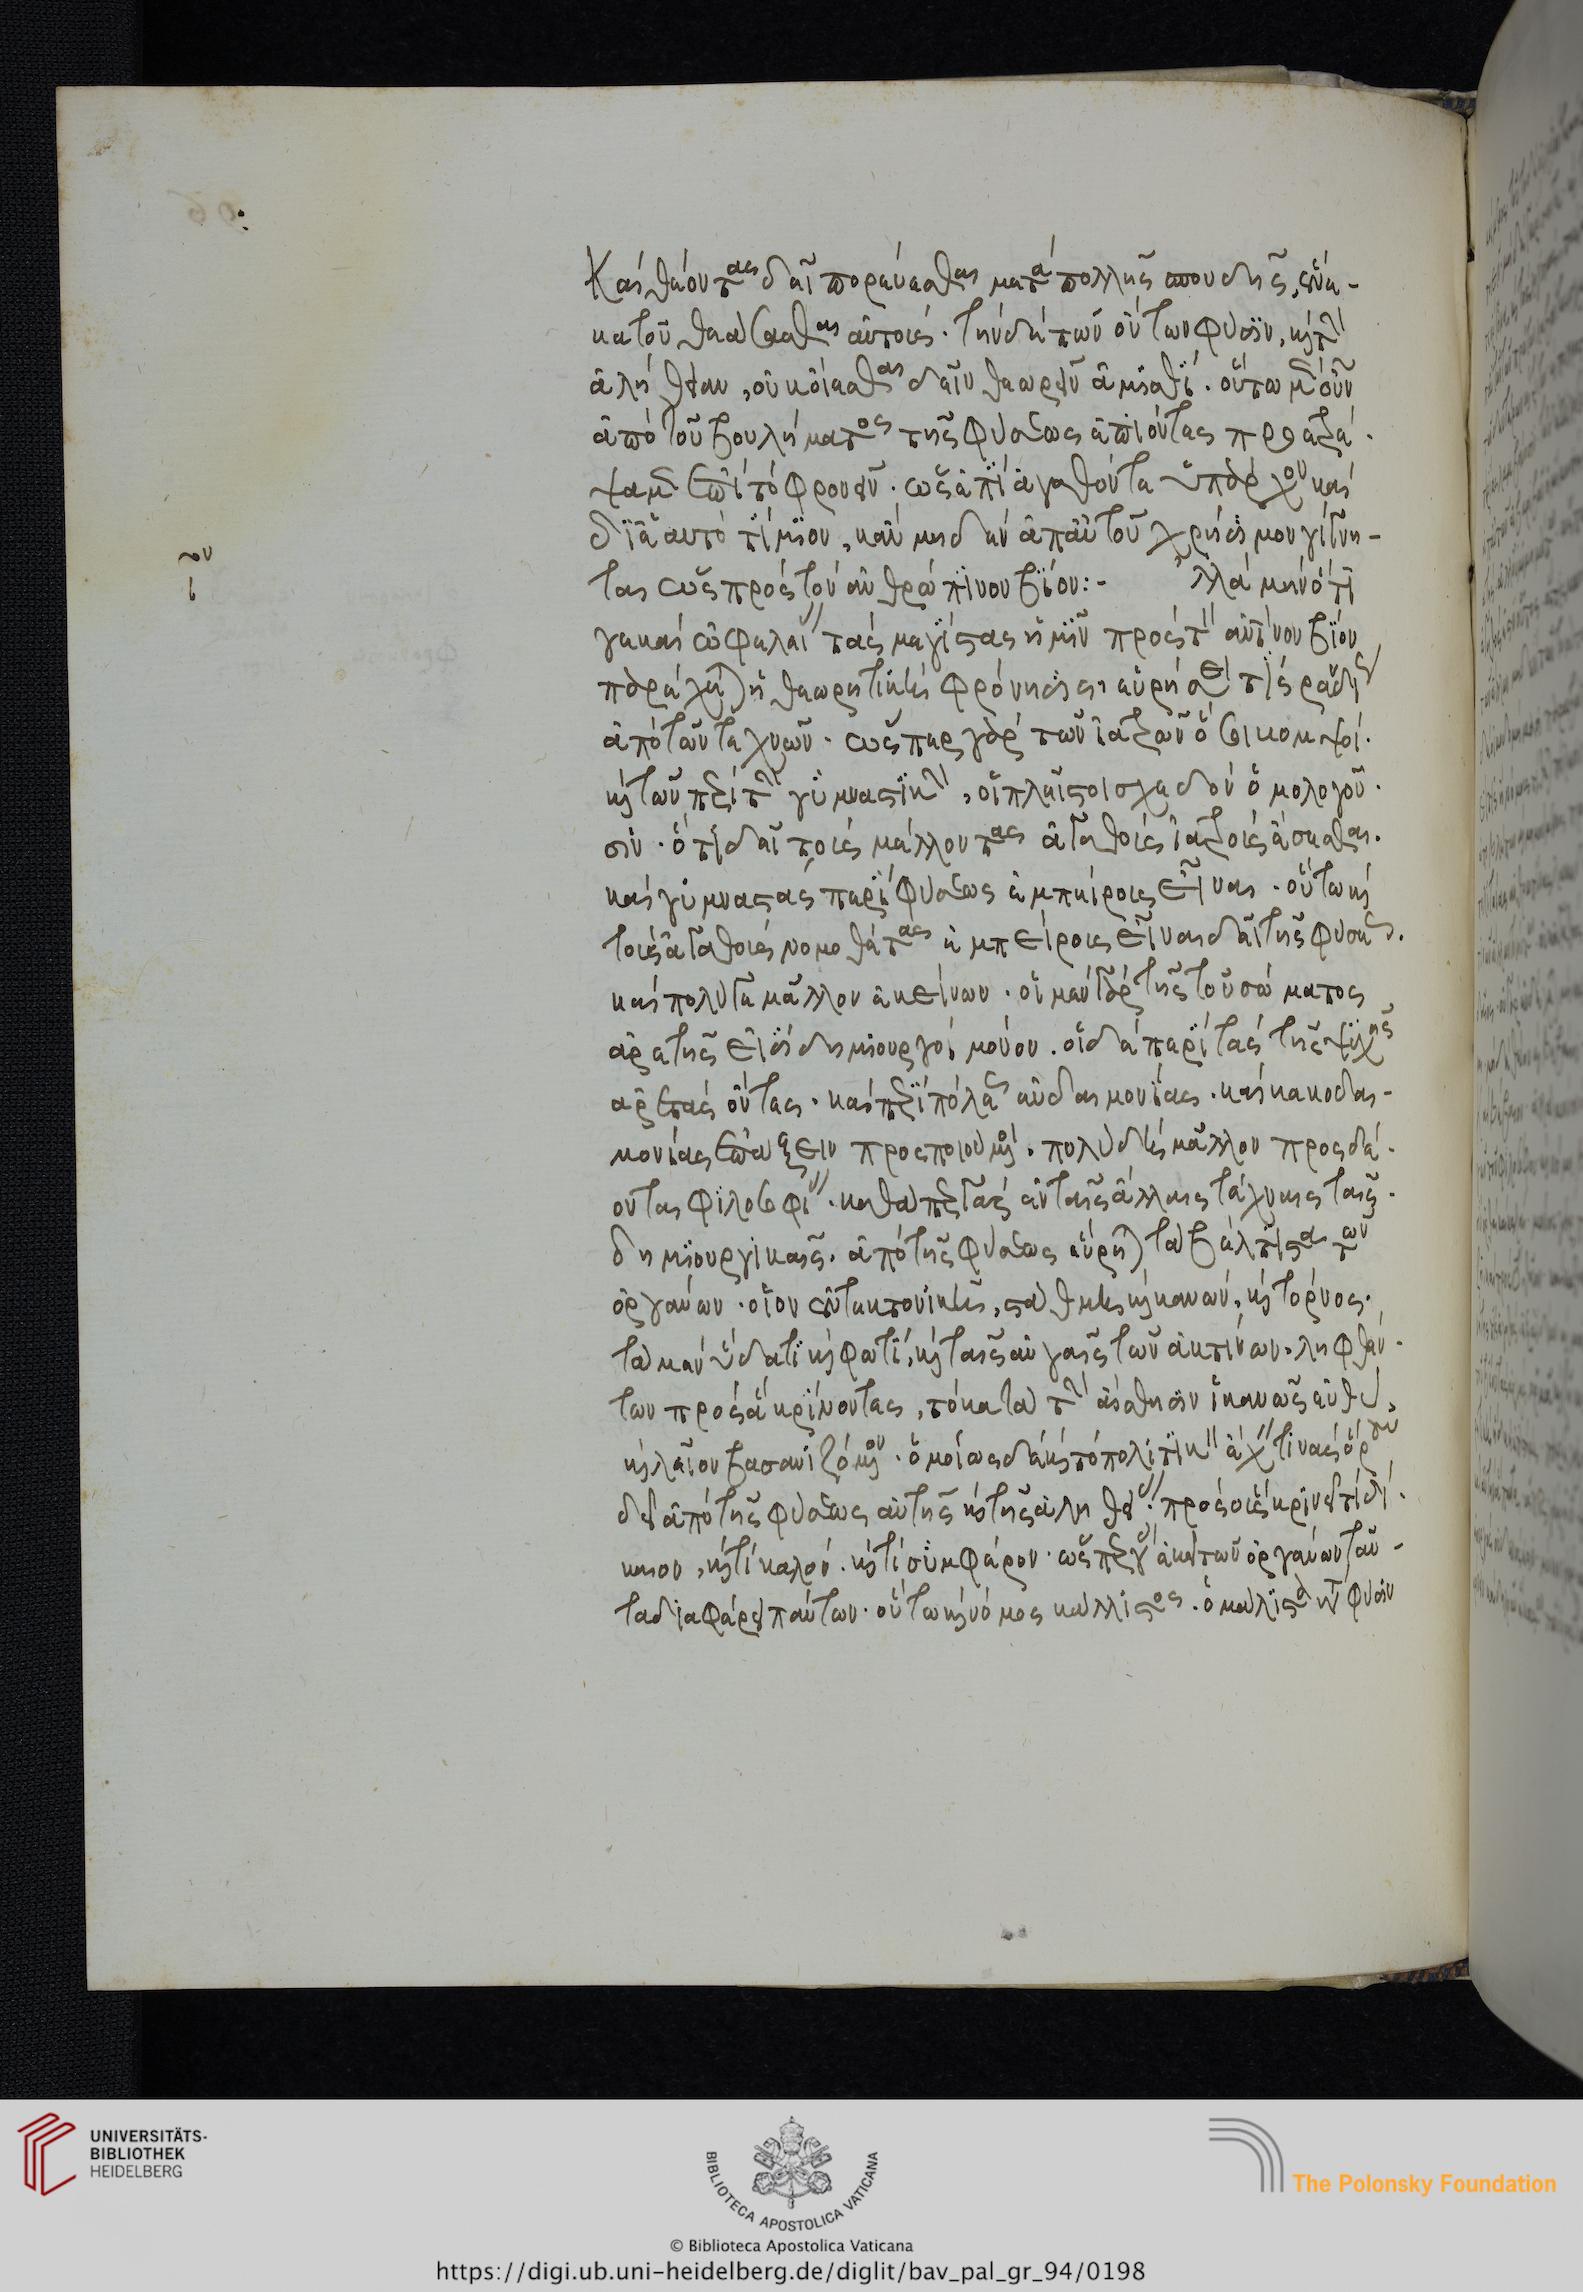 Καὶ θέοντας δεῖ πορεύεσθαι μετὰ πολλῆς σπουδῆς, ἕνε-
κα τοῦ θεάσασθαι αὐτούς. τὴν δὲ τῶν ὄντων φύσιν, καὶ τὴν
ἀλήθειαν, οὐκ οἴεσθαι δεῖν θεωρεῖν ἀμισθί. οὕτω μὲν οὖν
ἀπὸ τοῦ βουλήματος τῆς φύσεως ἐπιόντες προετρέ-
ψαμεν ἐπὶ τὸ φρονεῖν. ὡς ἐπὶ ἀγαθὸν τι ὑπάρχον καὶ
δι' ἑαυτὸ τίμιον, κἂν μηδὲν ἀπ' αὐτοῦ χρήσιμον γίγνη-
ται ὡς πρὸς τὸν ἀνθρώπινον βίον:- Ἀλλὰ μὴν ὅτι
γε καὶ ὠφελείας τὰς μεγίστας ἡμῖν πρὸς τὸν ἀνθρώπινον βίον
παρέχεται ἡ θεωρητικὴ φρόνησις, εὑρήσει τὶς ῥᾳδίως
ἀπὸ τῶν τεχνῶν. ὥσπερ γὰρ τῶν ἰατρῶν ὅσοι κομψοί.
καὶ τῶν περὶ τὴν γυμναστικὴν, οἱ πλεῖστοι σχεδὸν ὁμολογοῦ-
σιν. ὅτι δεῖ τοὺς μέλλοντας ἀγαθοὺς ἰατροὺς ἔσεσθαι.
καὶ γυμναστὰς, περὶ φύσεως ἐμπείρους εἶναι. οὕτω καὶ
τοὺς ἀγαθοὺς νομοθέτας ἐμπείρους εἶναι δεῖ τῆς φύσεως.
καὶ πολύ γε μᾶλλον ἐκείνων. οἱ μὲν γὰρ τῆς τοῦ σώματος
ἀρετῆς εἰσὶ δημιουργοὶ μόνον. οἱ δὲ περὶ τὰς τῆς ψυχῆς
ἀρετὰς ὄντες. καὶ περὶ πόλεως εὐδαιμονίας. καὶ κακοδαι-
μονίας ἐπάξειν προσποιούμενοι. πολὺ δὴ μᾶλλον προσδέ-
ονται φιλοσοφίας. καθάπερ γὰρ ἐν ταῖς ἄλλαις τέχναις ταῖς
δημιουργικαῖς. ἀπὸ τῆς φύσεως εὕρηται τὰ βέλτιστα τῶν
ὀργάνων. οἷον ἐν τεκτονικῇ, στάθμη καὶ κανὼν, καὶ τόρνος.
τὰ μὲν ὕδατι καὶ φωτὶ, καὶ ταῖς αὐγαῖς τῶν ἀκτίνων. ληφθέν-
των πρὸς ἃ κρίνοντες, τὸ κατὰ τὴν αἴσθησιν ἱκανῶς εὐθὺ,
καὶ λεῖον βασανίζομεν. ὁμοίως δὲ καὶ τὸν πολιτικὸν ἔχειν τινὰς ὅρους
δεῖ ἀπὸ τῆς φύσεως αὐτῆς καὶ τῆς ἀληθείας. πρὸς οὓς κρινεῖ τί δί-
καιον, καὶ τί καλὸν. καὶ τί συμφέρον. ὥσπερ γὰρ ἐκεῖ τῶν ὀργάνων ταῦ-
τα διαφέρει πάντων. οὕτω καὶ νόμος κάλλιστος. ὁ μάλιστα κατὰ φύσιν
UNIVERSITÄTS-
BIBLIOTHEK
HEIDELBERG
BIBLIOTECA APOSTOLICA VATICANA
The Polonsky Foundation
© Biblioteca Apostolica Vaticana
https://digi.ub.uni-heidelberg.de/diglit/bav_pal_gr_94/0198